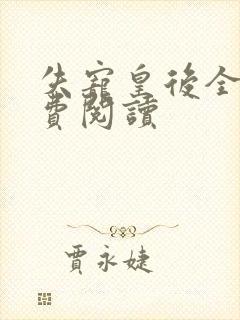 失寵皇後全
費閱讀
賈永婕